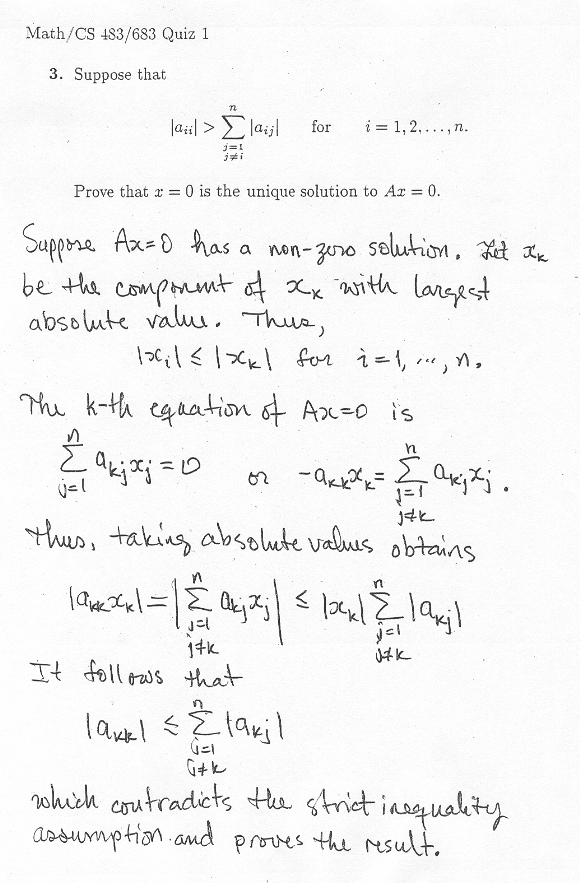 Math/CS 483/683 Quiz 1
3. Suppose that
|a_{ii}| > \sum_{\substack{j=1 \\ j \neq i}}^{n} |a_{ij}| for i = 1, 2, ..., n.
Prove that x = 0 is the unique solution to Ax = 0.
Suppose Ax=0 has a non-zero solution. Let x_k
be the component of x_k with largest
absolute value. Thus,
|x_i| ≤ |x_k| for i=1, ..., n.
The k-th equation of Ax=0 is
\sum_{j=1}^{n} a_{kj} x_j = 0 or -a_{kk} x_k = \sum_{\substack{j=1 \\ j \neq k}}^{n} a_{kj} x_j.
Thus, taking absolute values obtains
|a_{kk} x_k| = |\sum_{\substack{j=1 \\ j \neq k}}^{n} a_{kj} x_j| ≤ |x_k| \sum_{\substack{j=1 \\ j \neq k}}^{n} |a_{kj}|
It follows that
|a_{kk}| ≤ \sum_{\substack{j=1 \\ j \neq k}}^{n} |a_{kj}|
which contradicts the strict inequality
assumption and proves the result.